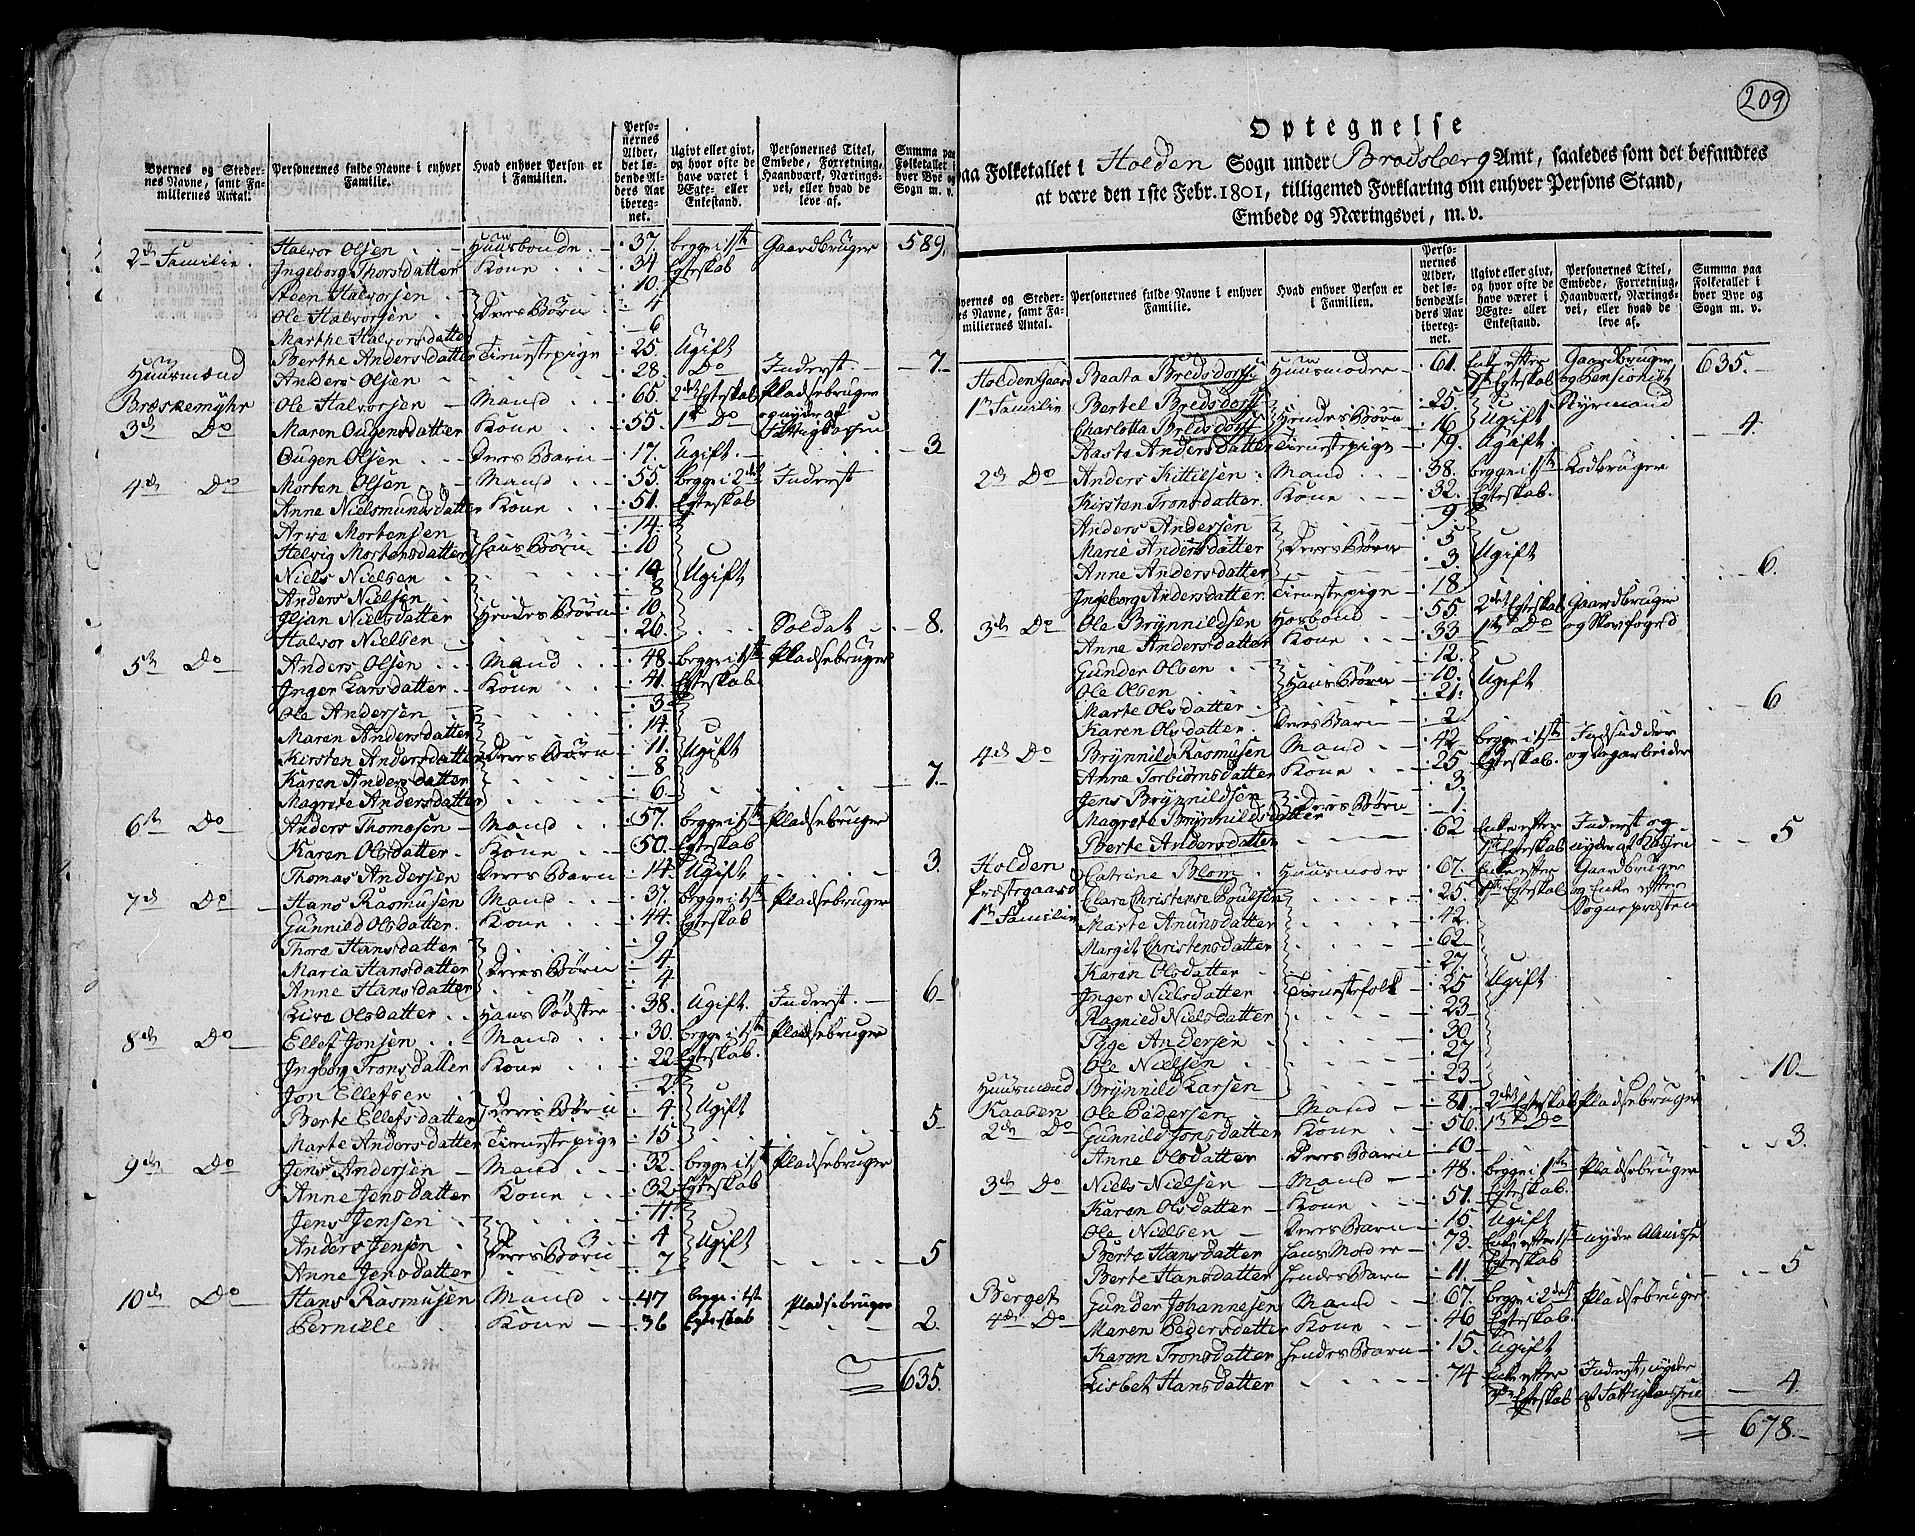 Byernes og Steder-
nes Navne, samt Fa-
miliernes Antal.
Personernes fulde Navne i enhver
Familie.
Hvad enhver Person er
i Familien.
Perso-
nernes
Alder,
det lø-
bende Al-
ders Aar
ibereg-
net.
Ugivt eller givt,
og hvor ofte de
have været i
Ægte- eller
Enkestand.
Personernes Titel,
Embede, Forretning,
Haandværk, Nærings-
vei, eller hvad de
leve af.
Summa paa
Folketallet i
hver Bye og
Sogn m. v.
2den Familie Halvor Olsen Huusbonde 37. begge i 1ste Gaardbruger 589.
Ingeborg Thorsdatter Kone 34 Egteskab
Steen Halvorsen 10
Ole Halvorsen Deres Børn 4
Marthe Halvorsdatter 6
Berthe Andersdatter Tienestepige 25. Ugift
Huusmænd Anders Olsen 28. Do Inderst 7
Bræskemyhr Ole Halvorsen Mand 65. 2det Egteskab Pladsebruger
3de Do Maren Ougensdatter Kone 55. 1ste Do og nyder af Fattigkassen
Ougen Olsen Deres Barn 17. Ugift 3
4de Do Morten Olsen Mand 55. begge i 2det Inderst
Anne Nielsmundsdatter Kone 51. Egteskab
Arve Mortensen 14.
Helvig Mortensdatter Hans Børn 10
Niels Nielsen 14
Anders Nielsen 8 Ugift
Iljan Nielsdatter Hendes Børn 10
Halvor Nielsen 26. Soldat 8.
5te Do Anders Olsen Mand 48. begge i 1ste Pladsebruger
Inger Larsdatter Kone 41. Egteskab
Ole Andersen 3
Maren Andersdatter 14.
Kirsten Andersdatter Deres Børn 11. Ugift
Karen Andersdatter 8
Magrete Andersdatter 6 7
6te Do Anders Thomasen Mand 57. begge i 1ste Pladsebruger
Karen Olsdatter Kone 50. Egteskab
Thomas Andersen Deres Barn 14 Ugift 3.
7de Do Hans Rasmusen Mand 37. begge i 1ste Pladsebruger
Gunnild Olsdatter Kone 44. Egteskab
Thora Hansdatter 9
Maria Hansdatter Deres Børn 4
Anne Hansdatter 4
Live Olsdatter Hans Sødster 38. Ugift Inderst 6
8de Do Ellef Jonsen Mand 30. begge i 1ste Pladsebruger
Ingborg Tronsdatter Kone 22 Egteskab.
Jon Ellefsen 2
Berte Ellefsdatter Deres Børn 4. Ugift
Marte Andersdatter Tienestepige 15 5
9de Do Jens Andersen Mand 32. begge i 1st Pladsebruger
Anne Jensdatter Kone 32 Egteskab
Jens Jensen 11
Anders Jensen Deres Børn 4 Ugift
Anne Jensdatter 7 5
10de Do Hans Rasmusen Mand 47 begge i 1st Pladsebruger
Pernille Kone 36 Egteskab 2.
635.
209
Optegnelse
paa Folketallet i Holden Sogn under Bradsberg Amt, saaledes som det befandtes
at være den 1ste Febr. 1801, tilligemed Forklaring om enhver Persons Stand,
Embede og Næringsvei, m. v.
Byernes og Steder-
nes Navne, samt Fa-
miliernes Antal.
Personernes fulde Navne i enhver
Familie.
Hvad enhver Person er
i Familien.
Perso-
nernes
Alder,
det lø-
bende Al-
ders Aar
ibereg-
net.
Ugivt eller givt,
og hvor ofte de
have været i
Ægte- eller
Enkestand.
Personernes Titel,
Embede, Forretning,
Haandværk, Nærings-
vei, eller hvad de
leve af.
Summa paa
Folketallet i
hver Bye og
Sogn m. v.
Holden Gaard Beata Bredsdorff Huusmoder 61. Enke efter 1ste Egteskab Gaardbruger og Pensionist 635.
1ste Familie Bertel Bredsdorff 25. Styrmand
Charlotta Bredsdorff Hendes Børn 16 Ugift
Aaste Andersdatter Tienestepige 19. Ugift. 4.
2den Do Anders Kittilsen Mand 38. begge i 1ste Lodbruger
Kirsten Tronsdatter Kone 32. Egteskab.
Anders Andersen 9
Marie Andersdatter Deres Børn 5
Anne Andersdatter 3. Ugift
Ingeborg Andersdatter Tienestepige 18 6.
3de Do Ole Brynnildsen Hosbond 55 2det Egteskab Gaardbruger
Anne Andersdatter Kone 33. 1ste Do og Skovfoged
Gunder Olsen 12.
Ole Olsen Hans Børn 10. Ugift
Marte Olsdatter 21.
Karen Olsdatter Deres Barn 2 6
4de Do Brynnild Rasmusen Mand 42 begge i 1ste Indsidder
Anne Torbiørnsdatter Kone 25 Egteskab. og Dagarbeider
Jens Brynnildsen 3.
Magrete Brynnildsdatter Deres Børn 1.
Berte Andersdatter 62 Enke efter 1ste Egteskab Inderst og nyder af Kassen 5
Holden Catrine Blom Huusmoder 67. Enke efter Gaardbruger
Præstegaard Clare Christense Poulsen 25. 1ste Egteskab og Enke efter
1ste Familie Marte Anunsdatter 42. Sognepræsten
Margit Christensdatter 62
Karen Olsdatter 27.
Inger Nielsdatter Tienestefolk 25 Ugift
Ragnild Nielsdatter 23
Tyge Andersen 30
Ole Nielsen 27
Huusmænd Brynnild Larsen 23 10.
Kaasen Ole Pedersen Mand 81. 2det Egteskab Pladsebruger
2den Do Gunnild Jonsdatter Kone 56. 1ste Do
Anne Olsdatter Deres Barn 10 3.
3de Do Niels Nielsen Mand 48. begge i 1ste Pladsebruger
Karen Olsdatter Kone 51. Egteskab.
Ole Nielsen Deres Barn 15. Ugift
Berta Hansdatter Hans Moder 73. Enke efter 1ste Egteskab nyder Almisse
Berte Hansdatter Hendes Barn 11. 5
Berget Gunder Johannesen Mand 67. begge i 2det Pladsebruger
4de Do Maren Pedersdatter Kone 46 Egteskab.
Karen Tronsdatter Hendes Barn 15. Ugift
Lisbet Hansdatter 74 Enke efter 1ste Egteskab Inderst, nyder af Fattigkassen 4.
678.